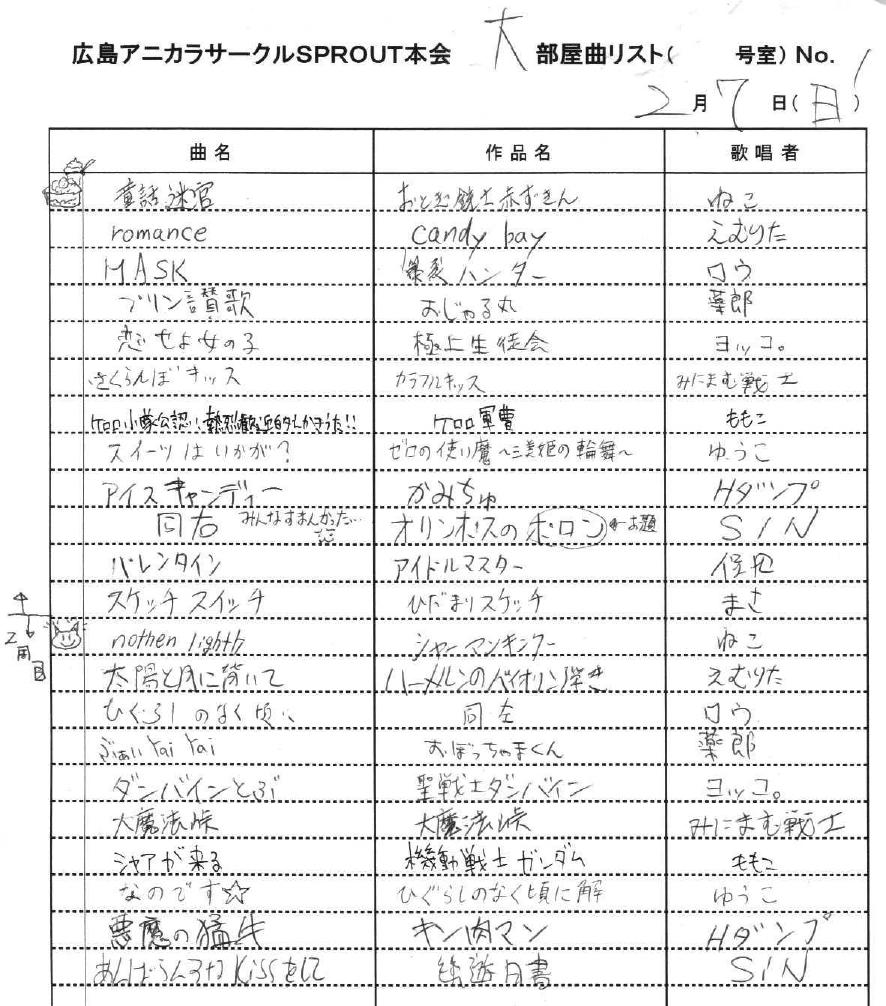 広島アニカラサークルSPROUT本会 大 部屋曲リスト( 号室) No.
2月7日(日)
曲名 作品名 歌唱者
童話迷宮 おとぎ銃士赤ずきん ねこ
romance candy bay えむりた
MASK 爆裂ハンター ロウ
プリン讃歌 おじゃる丸 薬郎
恋せよ女の子 極上生徒会 ヨッコ。
さくらんぼキッス カラフルキッス みにまむ戦士
ケロロ小隊公認 ケロロ軍曹 ももこ
スイーツはいかが? ゼロの使い魔〜三美姫の輪舞〜 ゆうこ
アイスキャンディー かみちゅ Hダンプ
同右 みんなすまんかった… オリンポスのポロン ←お題 SIN
バレンタイン アイドルマスター
スケッチスイッチ ひだまりスケッチ まさ
2周目
nothen lighth シャーマンキング ねこ
太陽と月に背いて ハーメルンのバイオリン弾き えむりた
ひぐらしのなく頃に 同左 ロウ
ぶぁいYaiYai おぼっちゃまくん 薬郎
ダンバインとぶ 聖戦士ダンバイン ヨッコ。
大魔法峠 大魔法峠 みにまむ戦士
シャアが来る 機動戦士ガンダム ももこ
なのです☆ ひぐらしのなく頃に解 ゆうこ
悪魔の猛牛 キン肉マン Hダンプ
あんばらんすなKissをして 幽遊白書 SIN